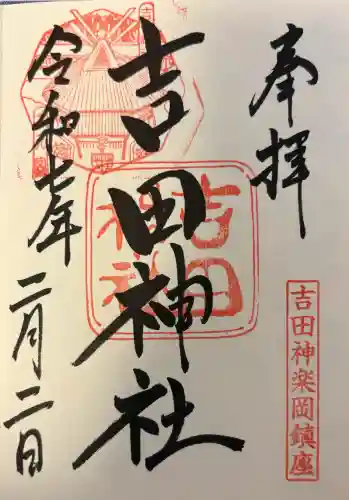 奉拝
吉田神楽岡鎮座
吉田神社
吉田
神社
令和七年
二月二日